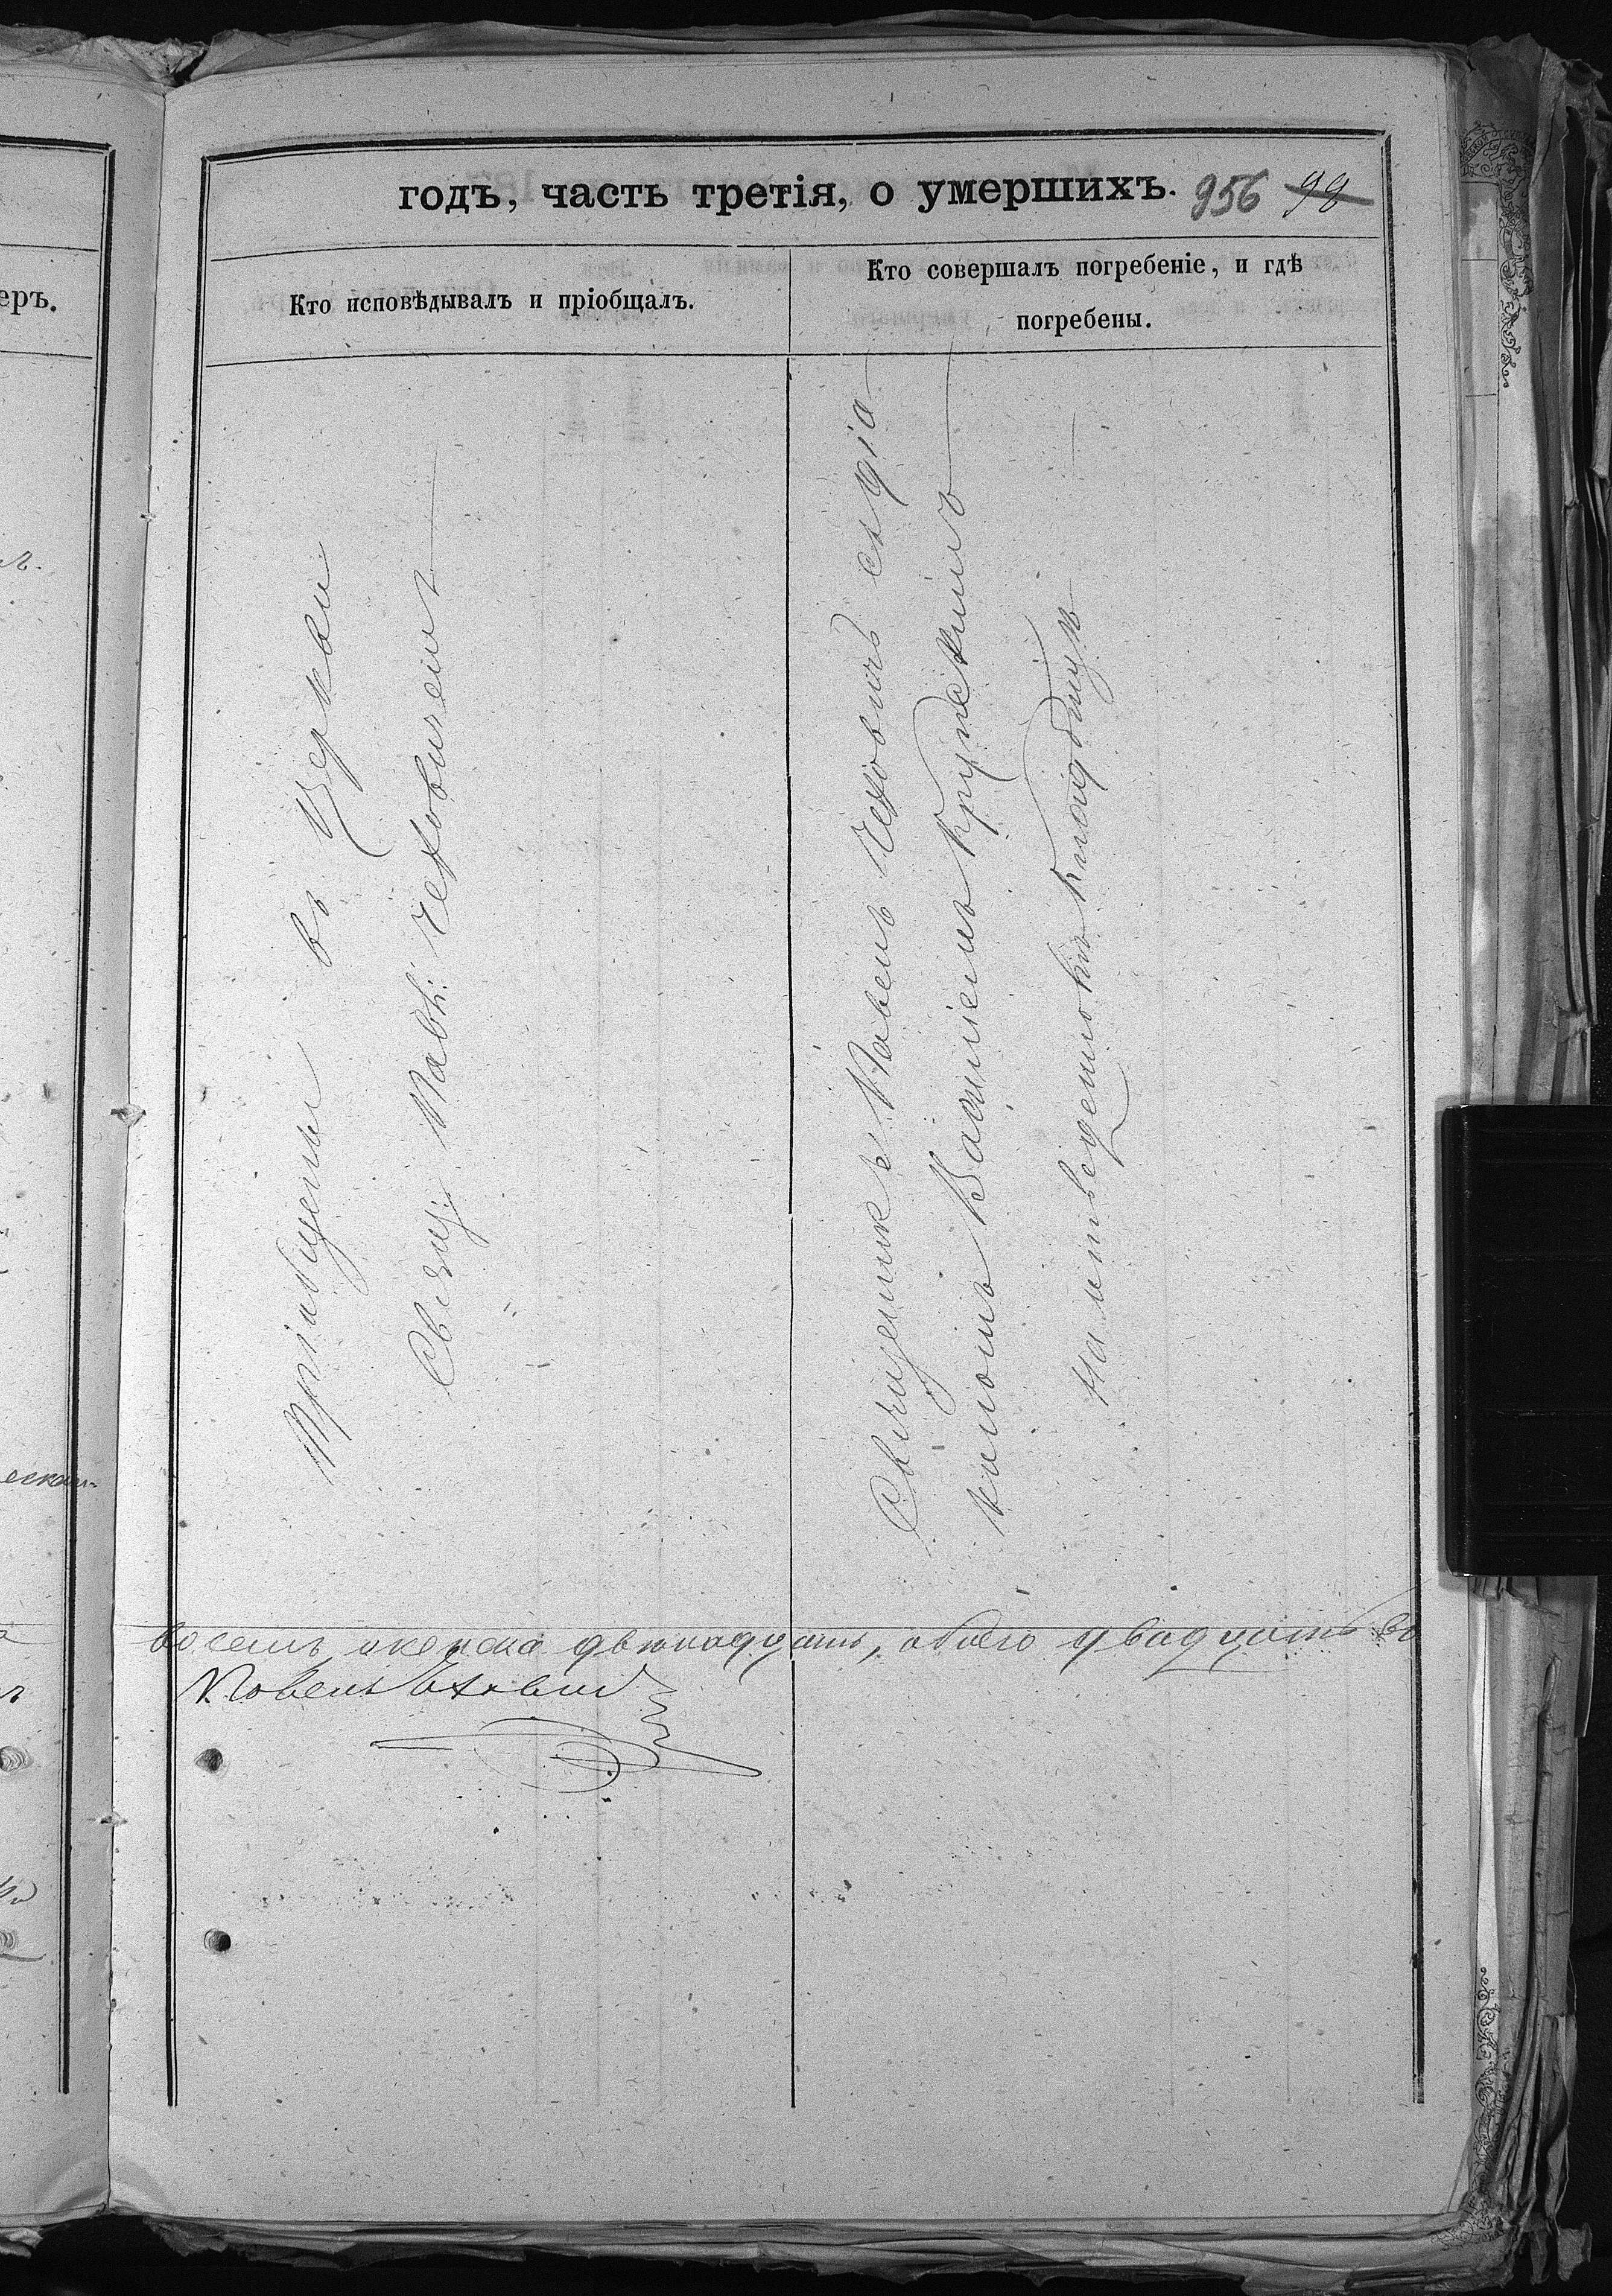 еръ.
годъ, часть третія, о умершихъ. 956 99
Кто исповѣдывалъ и пріобщалъ.
Кто совершалъ погребеніе, и гдѣ
погребены.
Пріобщены въ Церкви
Свящ. Павл. Чеховичемъ
Священникъ Павелъ Чеховичъ съ діа
кономъ Василіемъ Крупскимъ
на отведенномъ кладбищѣ
восемь женска двѣнадцать, обоего двадцать во
Павелъ Чехович